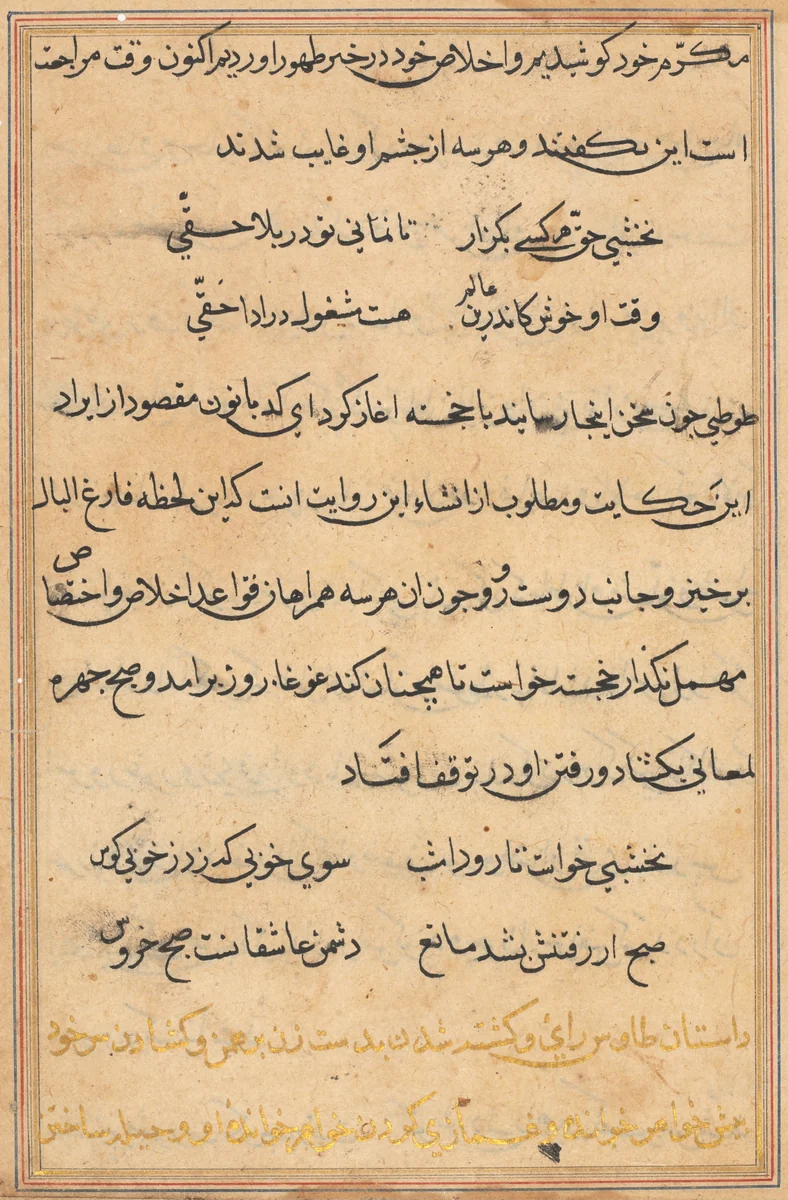 مکرّم خود کوشیدیم و اخلاص خود در خیر ظهور اوردیم اکنون وقت مراجعت
است این بکفتند و هر سه از جشم او غایب شدند
نخشبی حقّ هر کسی بکزار تا نمانی تو در بلا حقّی
وقت او خوش کاندرین عالم هست مشغول در ادا حَقّی
طوطی جون سخن اینجا رسانید با خجسته اغاز کرد ای کدبانو مقصود از ایراد
این حکایت و مطلوب از انشاء این روایت انست که این لحظه فارغ البال
برخیز و جانب دوست رو و جون ان هر سه همراهان قواعد اخلاص و اختصاص
مهمل نکذار خجسته خواست تا همچنان کند غوغا روز برامد و صبح جهره
لمعانی بکشاد و رفتن او در توقف افتاد
نخشبی خواست تا رود امشب سوی خوبی که زد ز خوبی کوس
صبح از رفتنش بشد مانع دشمن عاشقانست صبح خروس
داستان طاوس رای و کشته شدن بدست زن برهمن و کشادن سر خود
پیش خواهر خوانده و غمازی کردن خواهر خوانده او و حیله ساختن